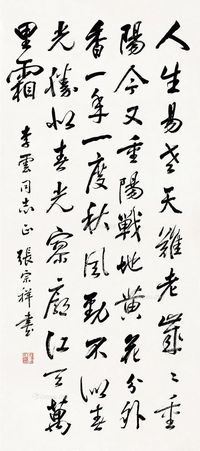 人生易老天難老歲〻重
陽今又重陽戰地黃花分外
香一年一度秋風勁不似春
光勝似春光寥廓江天萬
里霜
李雲同志正 張宗祥書